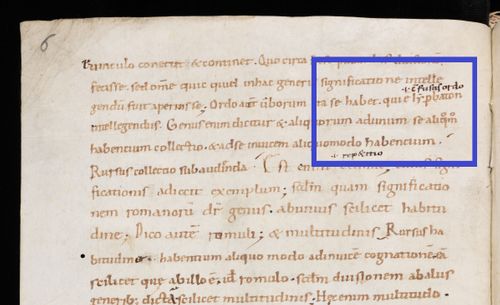 6
uinculo conectit & continet. Quo circa
fecisse. sed om̄e quic quid in hac generis significatione intelle
gendū fuit aperuisse; Ordo aut̄ uerborum ita se habet.
intellegendus. Genus enim dicitur & aliquorum ad unum se
habentium collectio. & ad se inuicem aliquo modo habentium.
Rursus collectio sub audienda
ficationis adiecit exemplum; quam significatio
nem romanorū dr̄ genus. ab unius scilicet habitu
dine; Dico aut̄ romuli; & multitudinis Rursus ha
bitudine habentium aliquo modo ad inuicē cognationē
scilicet que ab illo ē. romulo. diuisionem ab aliis
generib; dicta scilicet multitudinis; Hec enim multitudo